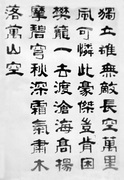 獨立雄無敵長空萬里
風可憐此豪傑豈肯困
樊籠一去渡滄海高揚
摩碧穹秋深霜氣肅木
落萬山空